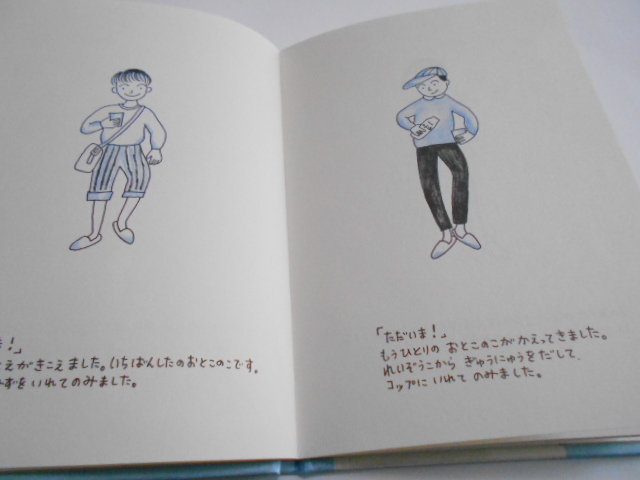 ！」
えがきこえました。いちばんしたのおとこのこです。
ずを いれて のみました。
「ただいま！」
もうひとりの おとこのこが かえってきました。
れいぞうこから ぎゅうにゅうを だして、
コップに いれて のみました。